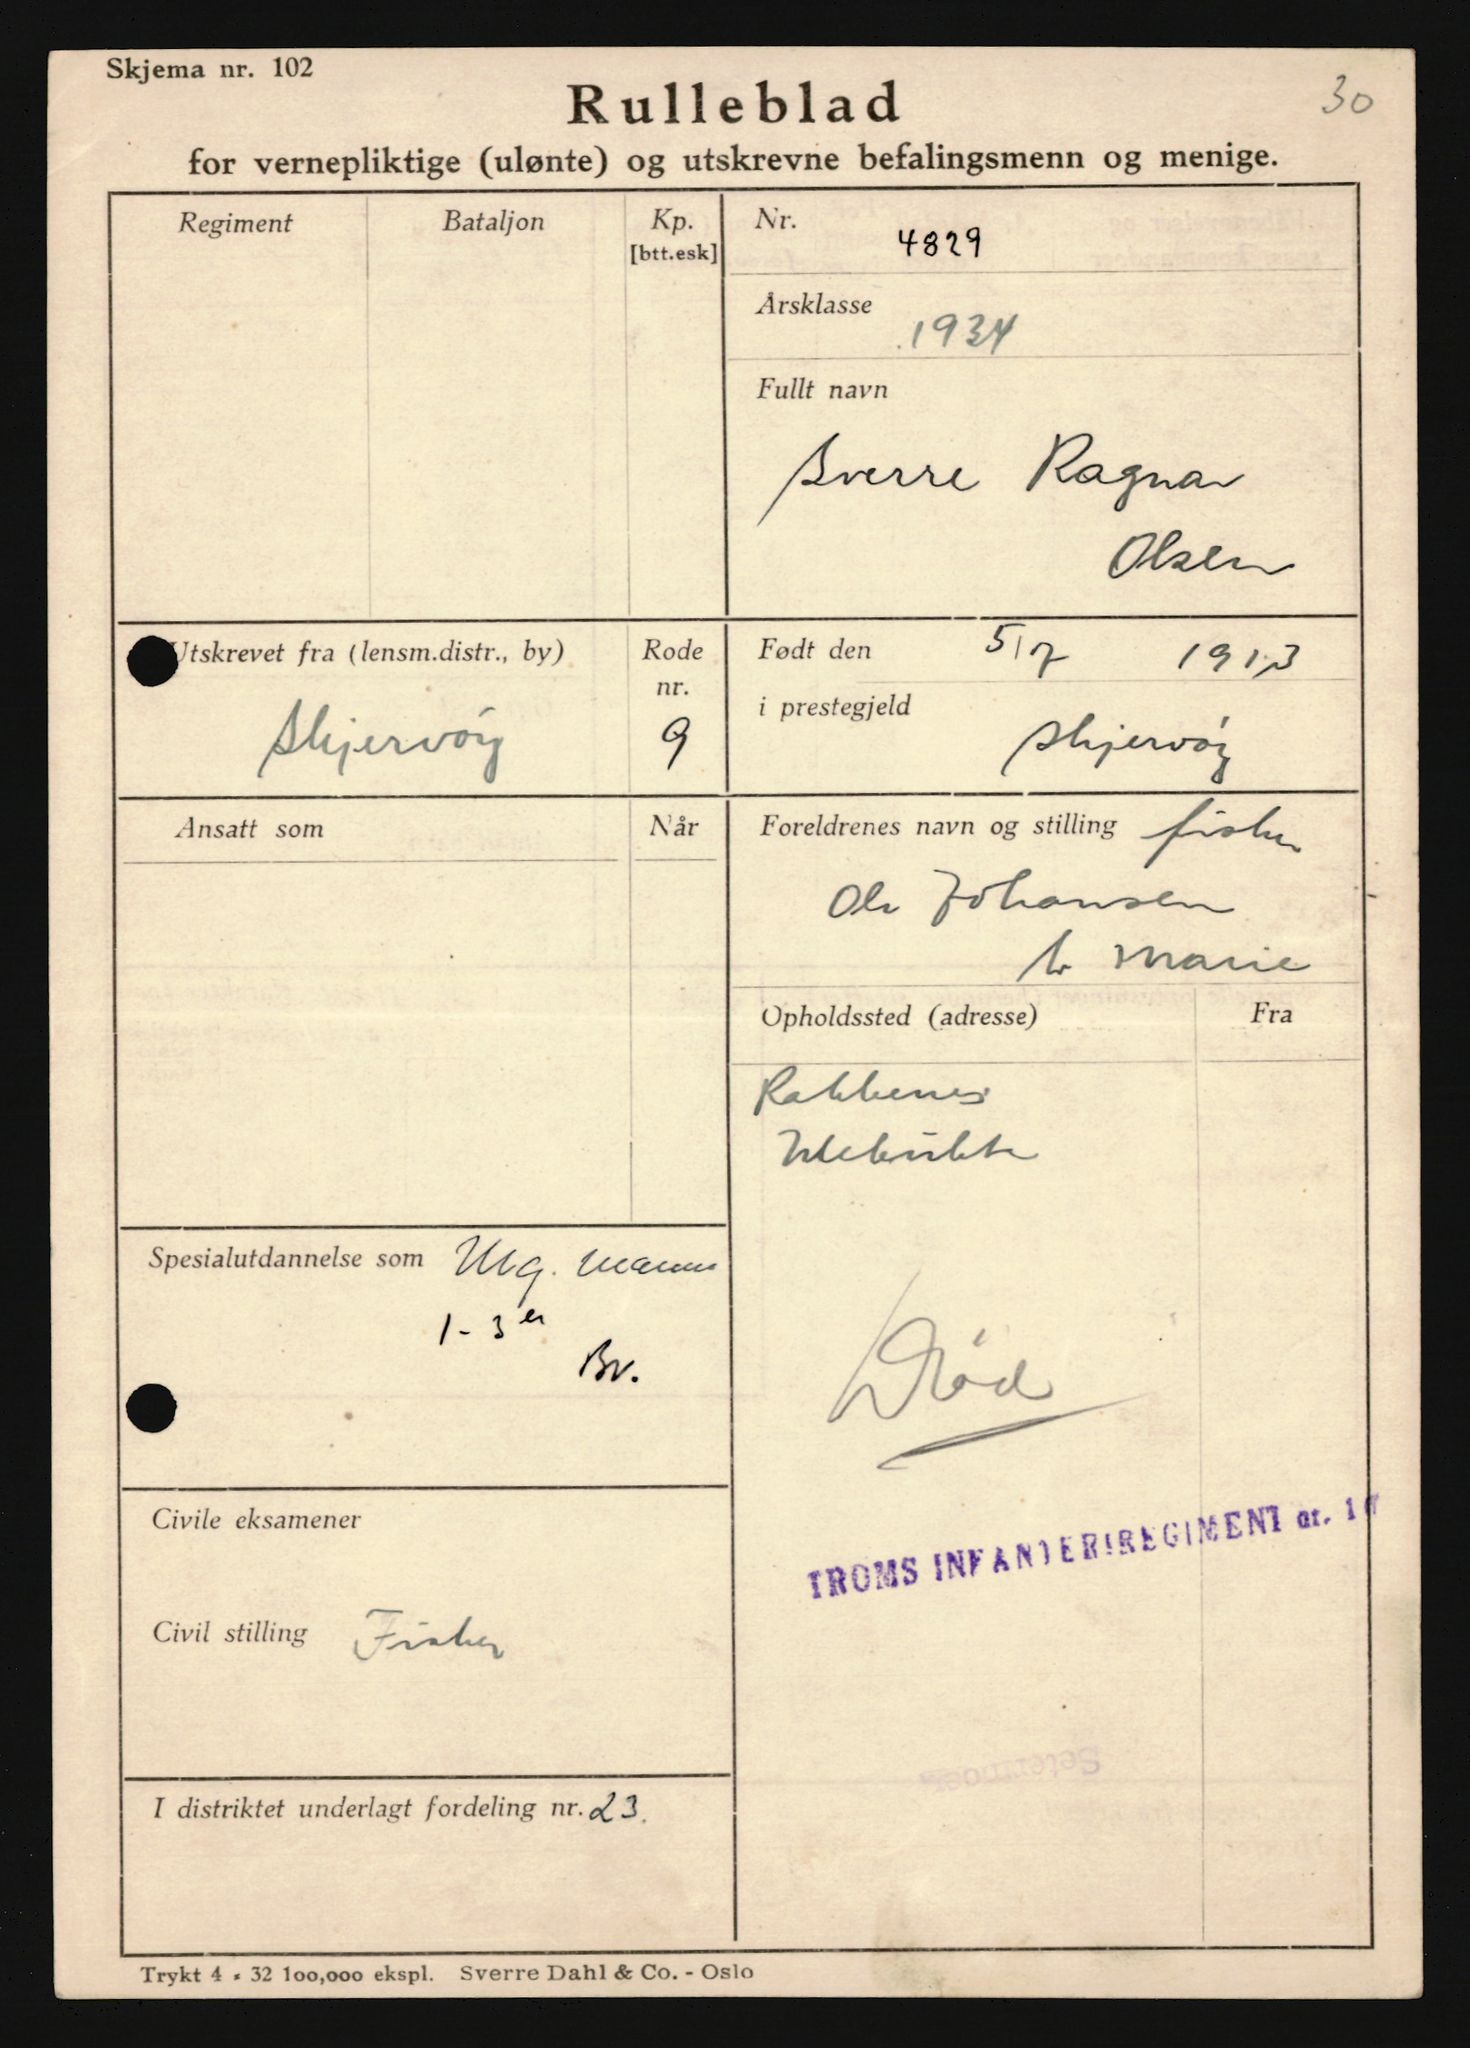 Skjema nr. 102
30
Rulleblad
for vernepliktige (ulønte) og utskrevne befalingsmenn og menige.
Regiment
Bataljon
Kp.
[btt.esk]
Nr.
4829
Årsklasse
1934
Fullt navn
Sverre Ragnar
Olsen
Utskrevet fra (lensm.distr., by)
Skjervöy
Rode
nr.
9
Født den 5/7 1913
i prestegjeld
Skjervöy
Ansatt som
Når
Foreldrenes navn og stilling fisker
Ole Johansen
h. Marie
Opholdssted (adresse)
Fra
Rakkenes
Spesialutdannelse som Mg. mann
1-3 er
Bv.
Död
Civile eksamener
TROMS INFANTERIREGIMENT nr. 16
Civil stilling Fisker
Setermoen
I distriktet underlagt fordeling nr. 23.
Trykt 4 - 32 100,000 ekspl. Sverre Dahl & Co. - Oslo